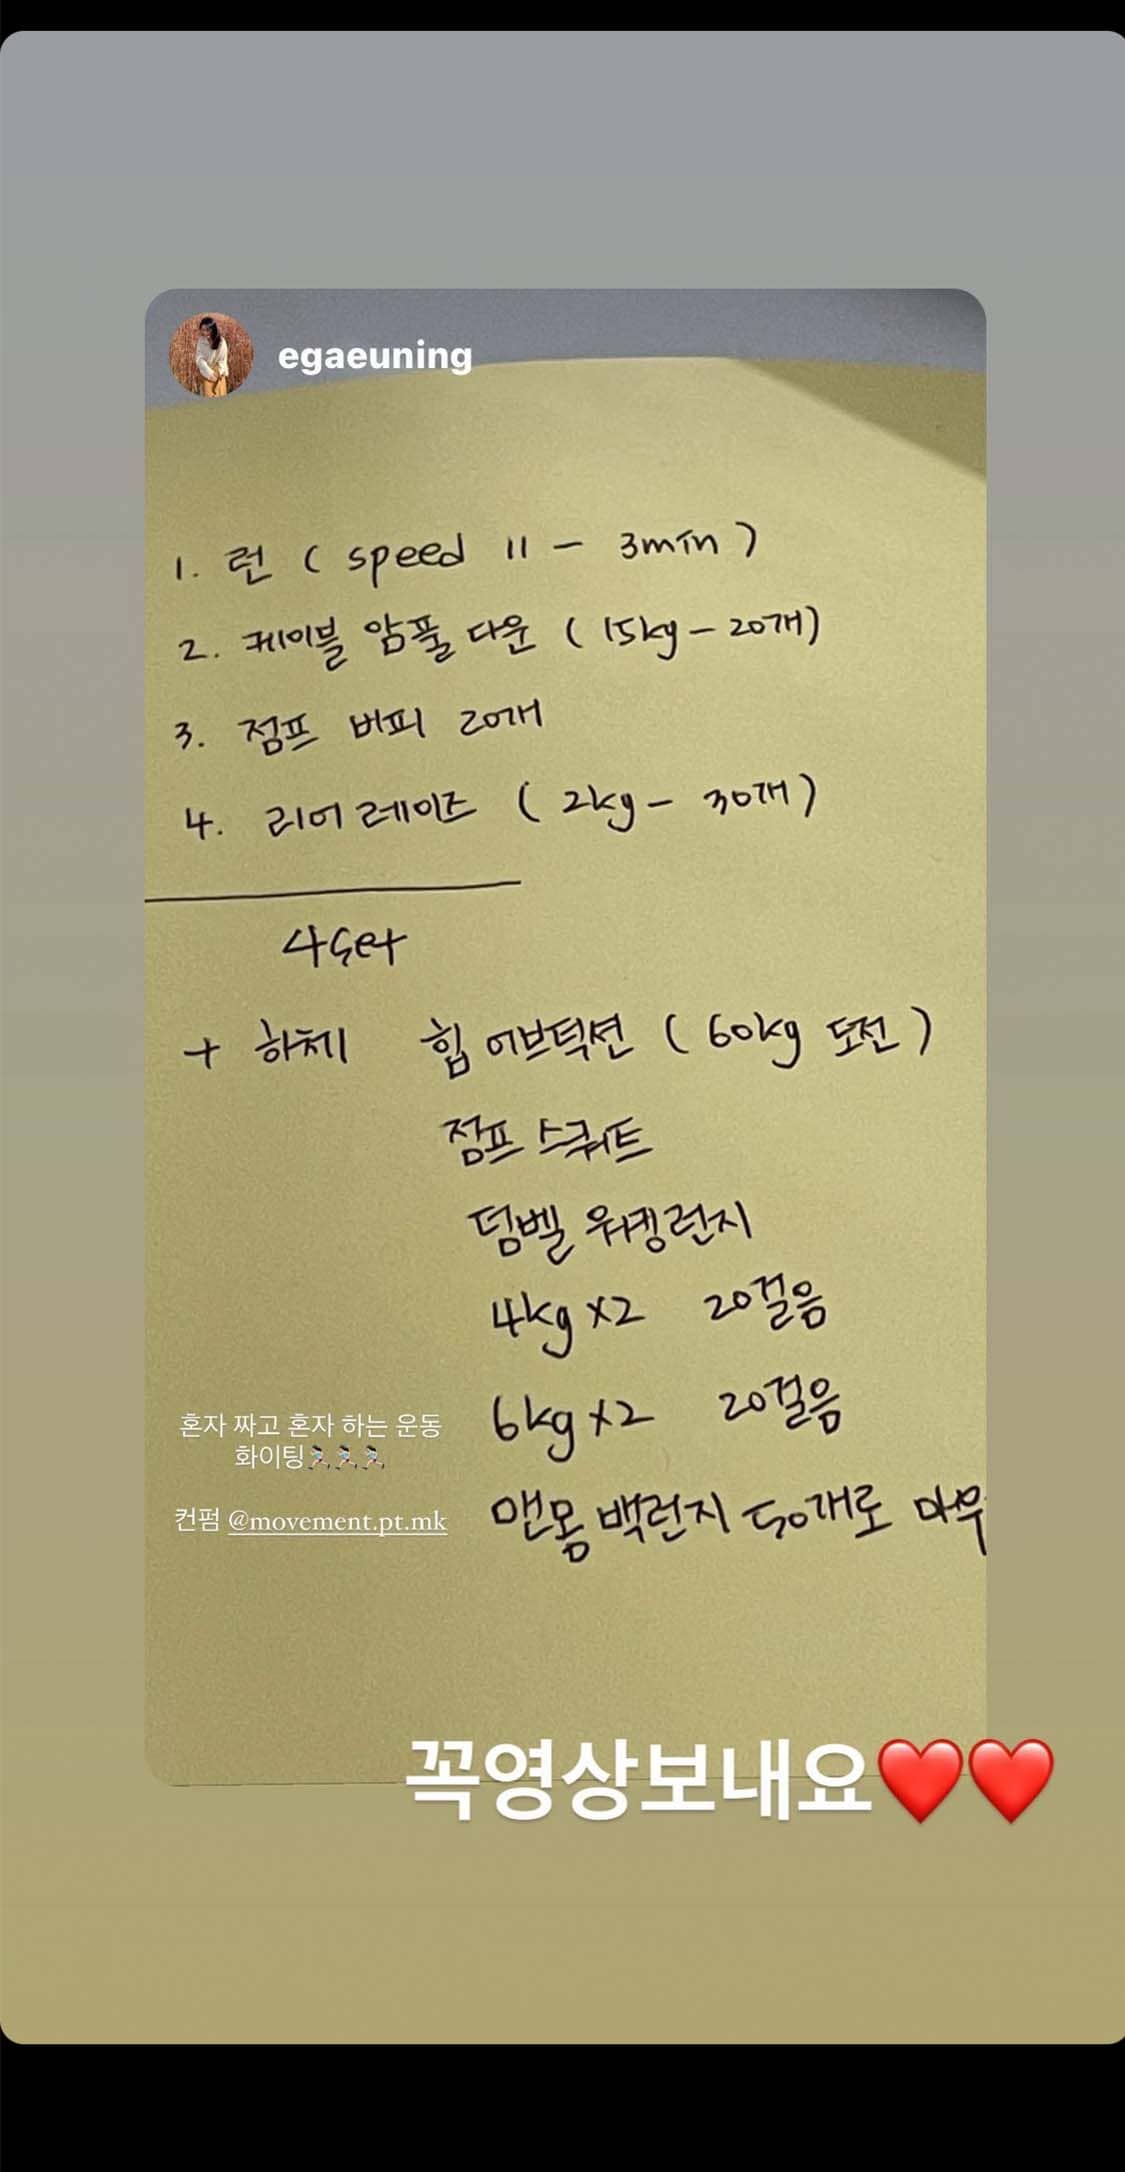 egaeuning
1. 런 ( speed 11 - 3min )
2. 케이블 암풀다운 ( 15kg - 20개 )
3. 점프 버피 20개
4. 리어 레이즈 ( 2kg - 30개 )
4set
+ 하체 힙 어브덕션 ( 60kg 도전 )
점프 스쿼트
덤벨 워킹런지
4kg x2 20걸음
6kg x2 20걸음
혼자 짜고 혼자 하는 운동
화이팅🏃🏻‍♀️🏃🏻‍♀️🏃🏻‍♀️
컨펌 @movement.pt.mk
맨몸 백런지 50개로 마무
꼭영상보내요❤️❤️